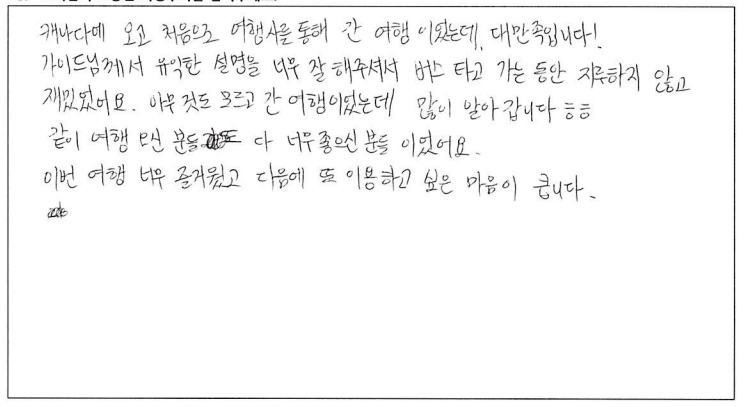 캐나다에 오고 처음으로 여행사를 통해 간 여행이었는데, 대만족입니다!
가이드님께서 유익한 설명을 너무 잘 해주셔서 버스 타고 가는 동안 지루하지 않고
재밌었어요. 아무것도 모르고 간 여행이었는데 많이 알아갑니다 ㅎㅎ
같이 여행 오신 분들 다 너무 좋으신 분들이었어요.
이번 여행 너무 즐거웠고 다음에 또 이용하고 싶은 마음이 큽니다.